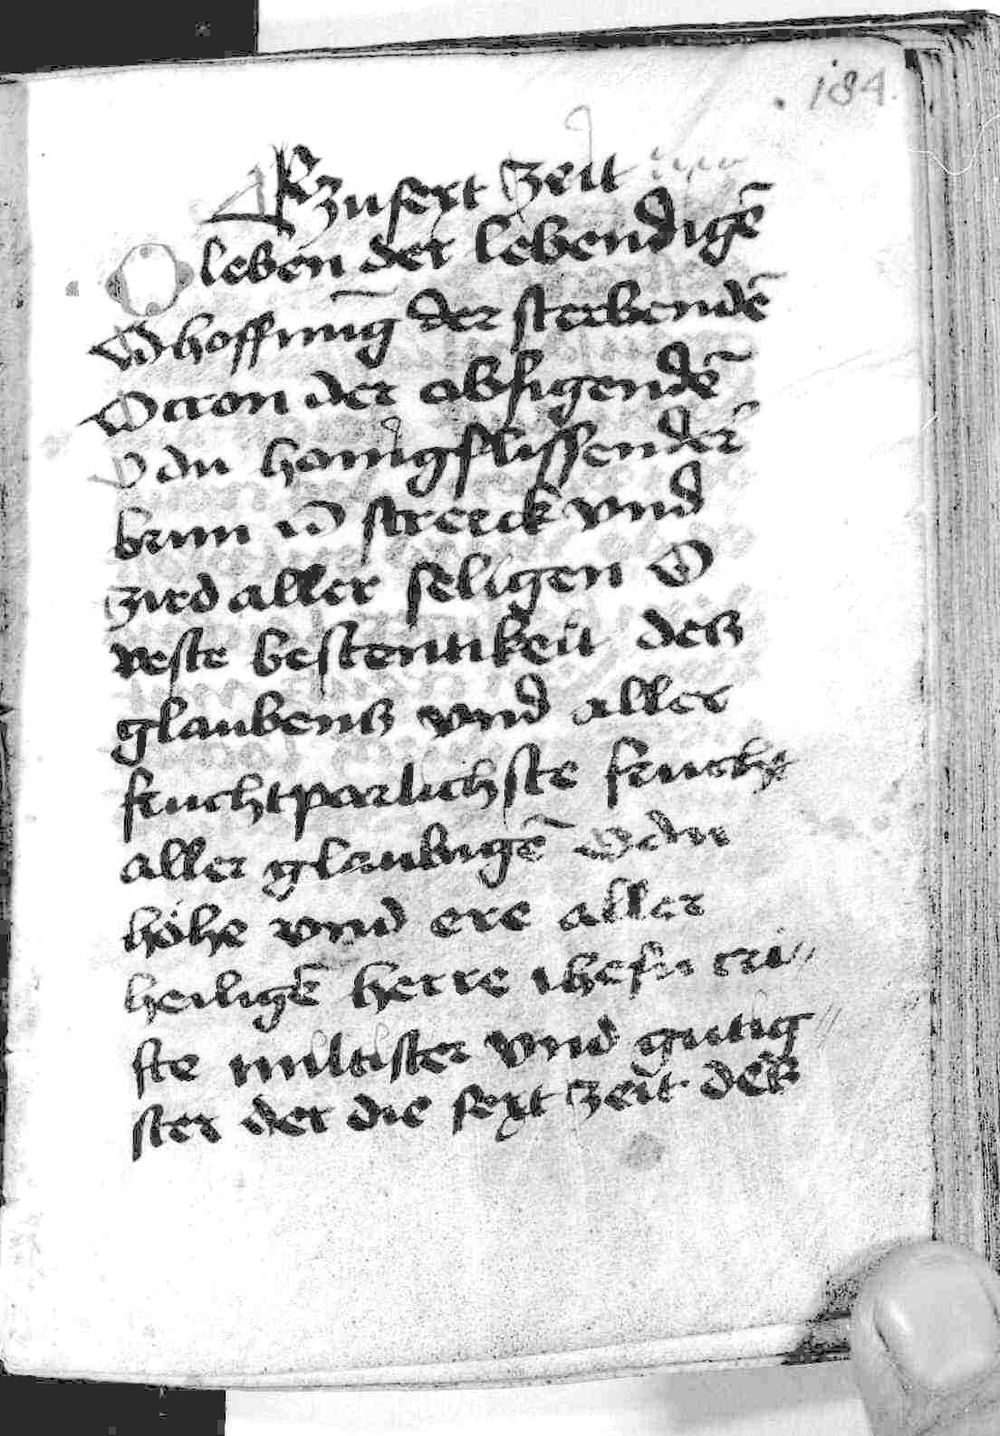 184.
Zu sext zeit
O leben der lebendigē
O hoffnūg der sterbendē
O cron der obsigendē
O du honigflissender
brun vn̄ sterck vnd
zird aller seligen O
veste bestentikeit des
glaubens vnd aller
fruchtparlichste frucht
aller glaubigē O du
höhe vnd ere aller
heiligē herre ihesu cri
ste miltister vnd gutig
ster der die sext zeit des